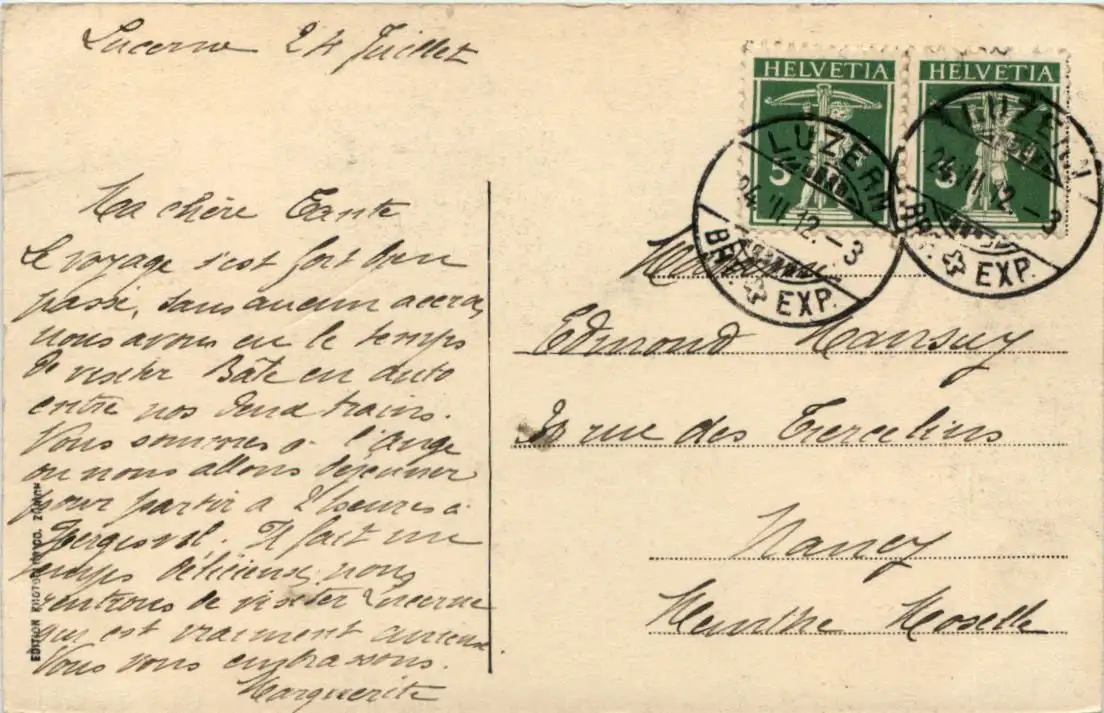 Lucerne 24 Juillet
HELVETIA HELVETIA
5 5
LUZERN
24.VII.12.-3
BRF. EXP.
LUZERN
24.VII.12.-3
BRF. EXP.
Ma chère Tante
Le voyage s'est fort bien
passé, sans aucun accroc,
nous avons eu le temps
de visiter Bâle en auto
entre nos deux trains.
Nous sommes à l'ange
ou nous allons déjeuner
pour partir à 2 heures à
Hergiswil. Il fait un
temps délicieux, nous
rentrons de visiter Lucerne
qui est vraiment
Nous vous embrassons.
Marguerite
Edmond Mansuy
30 rue des Tiercelins
Nancy
Meurthe Moselle
EDITION PHOTOGLOB CO. ZÜRICH